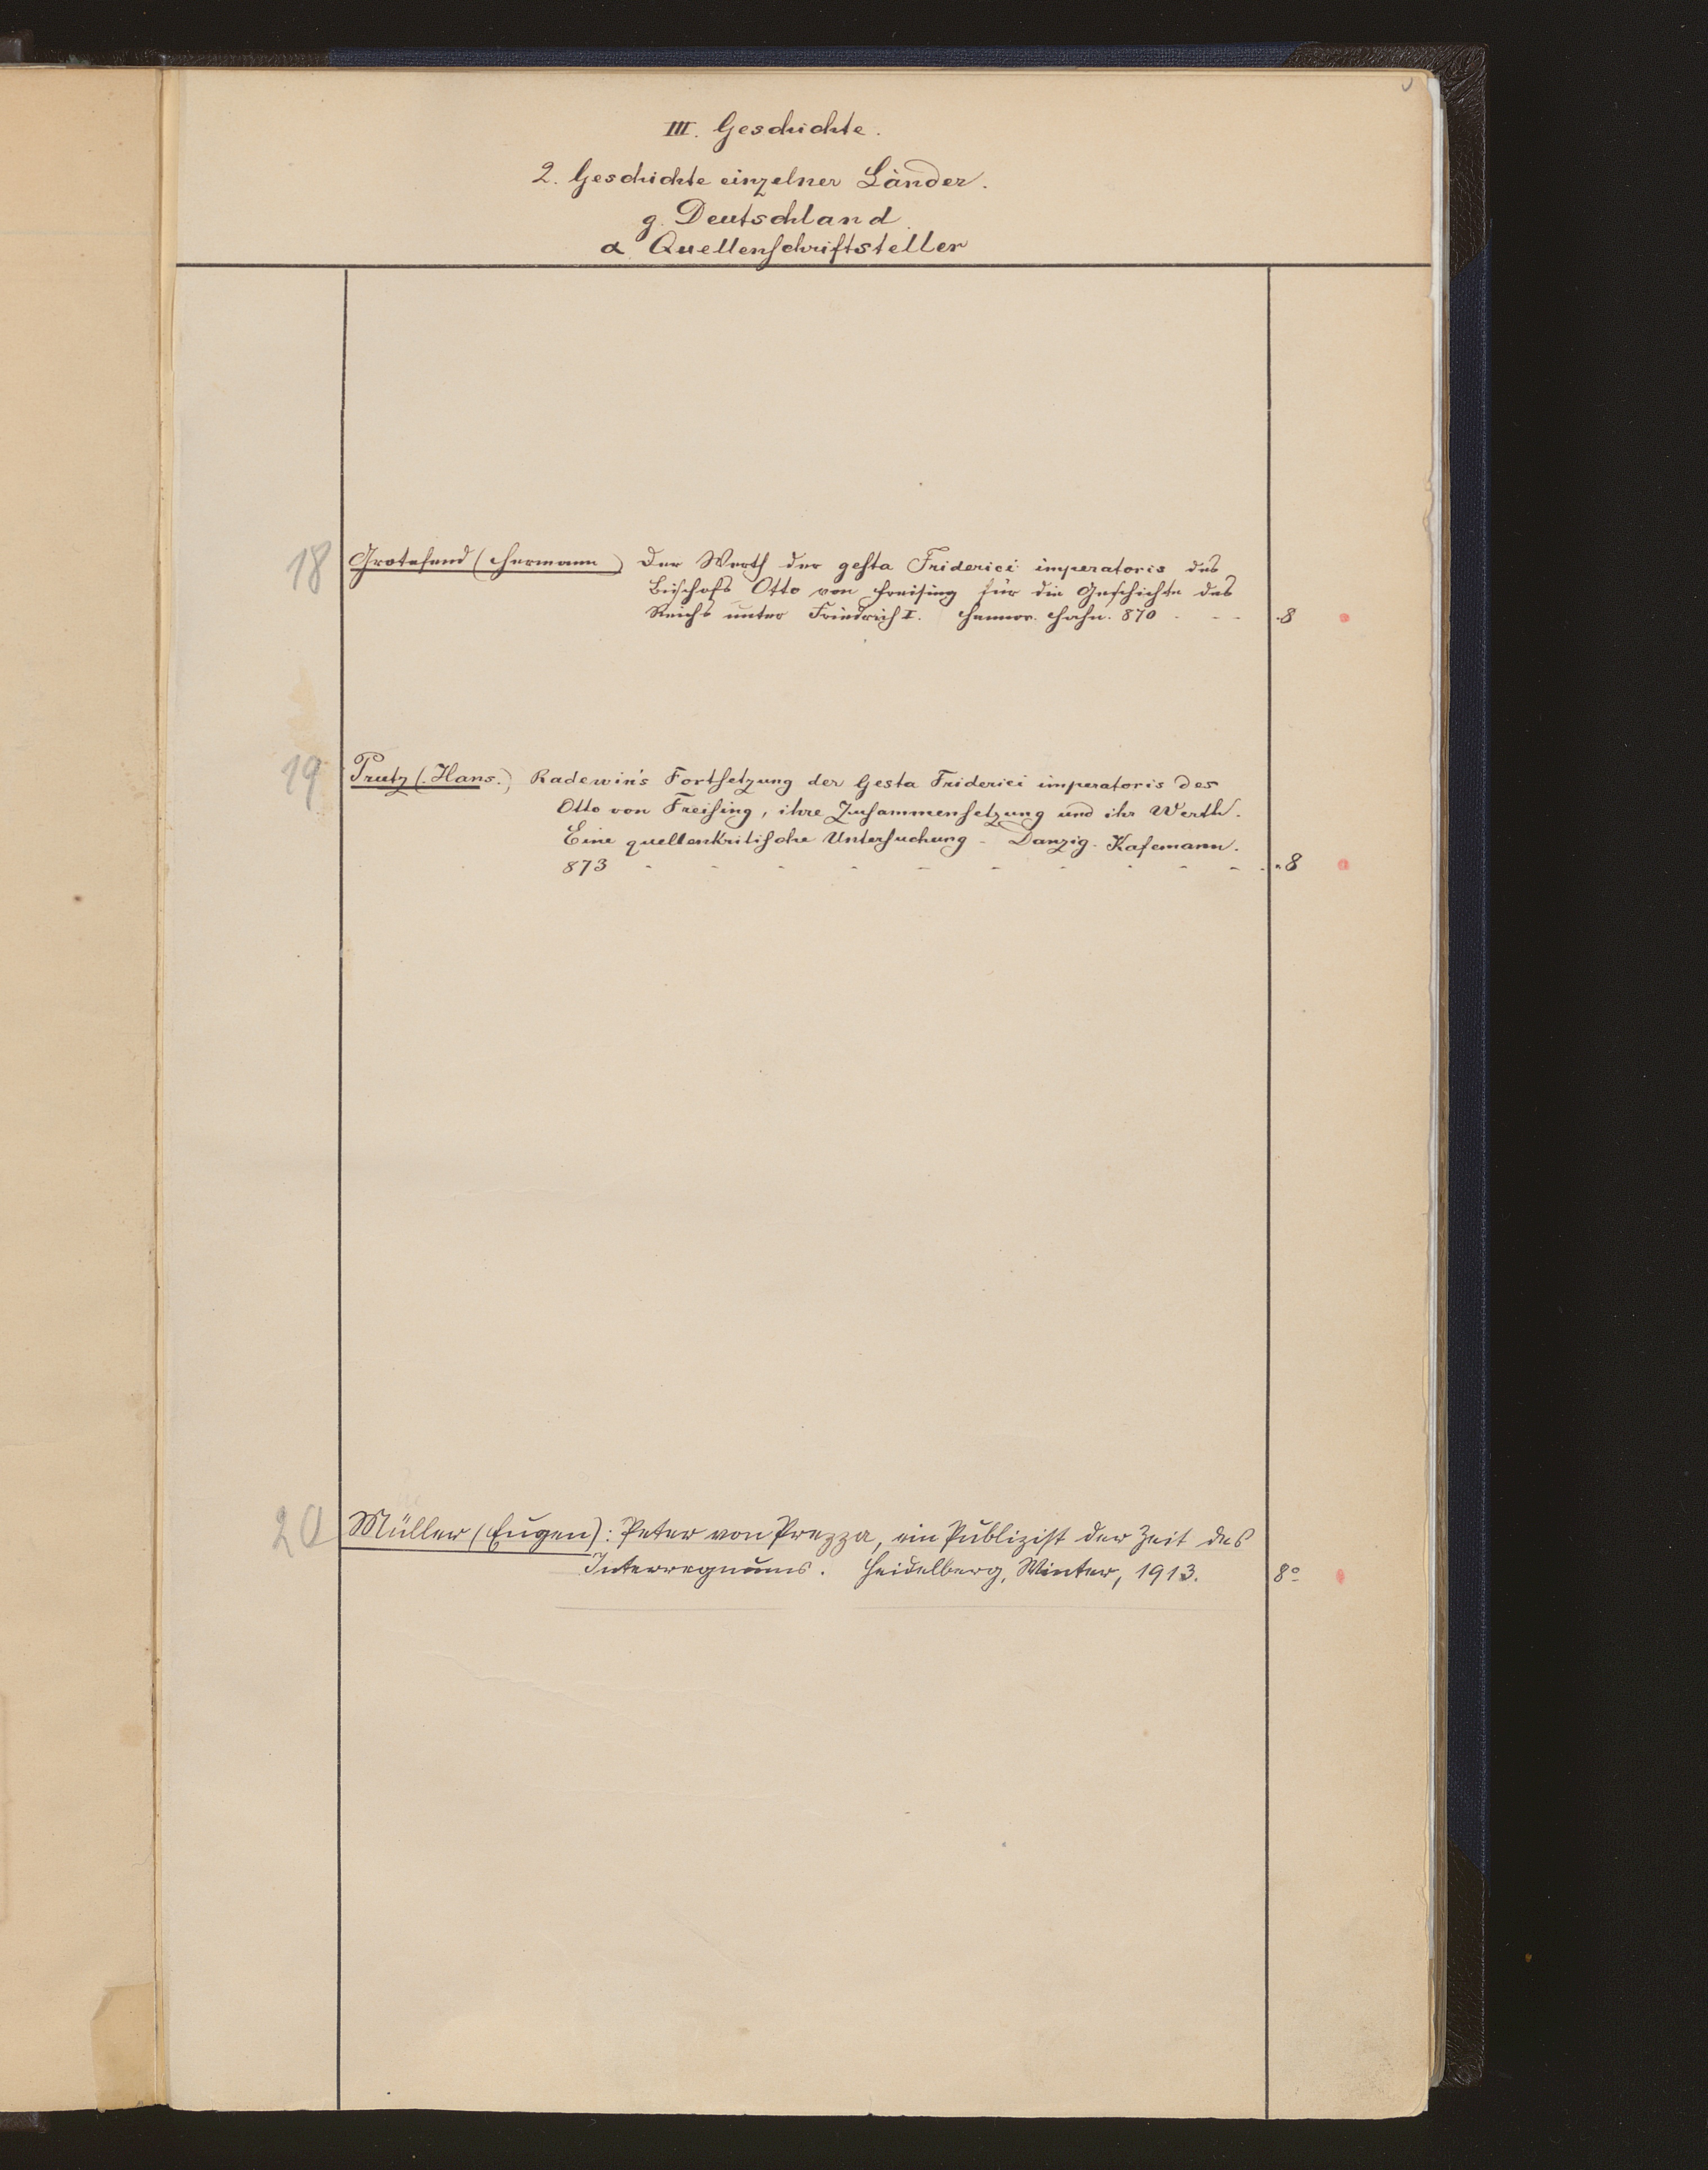 III. Geschichte.
2. Geschichte einzelner Länder.
g. Deutschland
α Quellenschriftsteller
18 Grotefend (Hermann) Der Werth der gesta Friderici imperatoris des
Bischofs Otto von Freising für die Geschichte des
Reichs unter Friedrich I. Hannov. Hahn. 870 - - - .8
19 Prutz (Hans.) Radewin's Fortsetzung der Gesta Friderici imperatoris des
Otto von Freising, ihre Zusammensetzung und ihr Werth.
Eine quellenkritische Untersuchung - Danzig. Kafemann.
873 - - - - - - - - - - .8
20 Müller (Eugen): Peter von Prezza, ein Publizist der Zeit des
Interregnums. Heidelberg, Winter, 1913. 8°